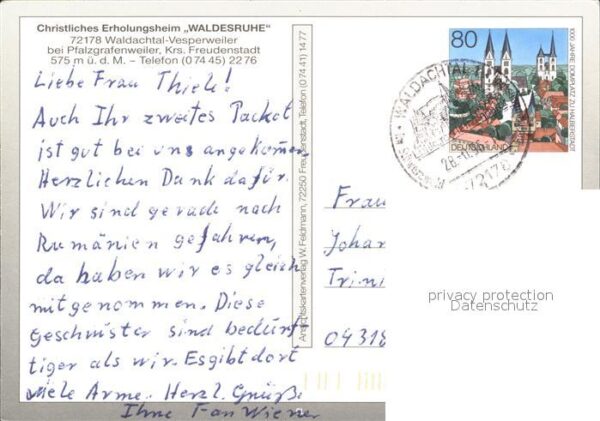 Christliches Erholungsheim „WALDESRUHE"
72178 Waldachtal-Vesperweiler
bei Pfalzgrafenweiler, Krs. Freudenstadt
575 m ü. d. M. – Telefon (0 74 45) 22 76
Liebe Frau Thiele!
Auch Ihr zweites Packet
ist gut bei uns angekommen.
Herzlichen Dank dafür.
Wir sind gerade nach
Rumänien gefahren,
da haben wir es gleich
mitgenommen. Diese
Geschwister sind bedürf
tiger als wir. Es gibt dort
viele Arme. Herzl. Grüße
Ihre Fam Wiener
Ansichtskartenverlag W. Feldmann, 72250 Freudenstadt, Telefon (0 74 41) 14 77
80
DEUTSCHLAND
1000 JAHRE DOMPLATZ ZU HALBERSTADT
WALDACHTAL
72178
Frau
Johan
Trini
04318
privacy protection
Datenschutz